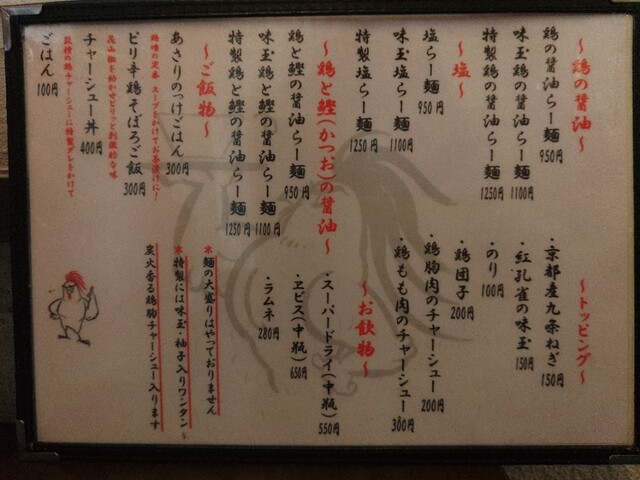 ～鶏の醤油～
鶏の醤油らー麺 950円
味玉鶏の醤油らー麺 1100円
特製鶏の醤油らー麺 1250円
～塩～
塩らー麺 950円
味玉塩らー麺 1100円
特製塩らー麺 1250円
～鶏と鰹(かつお)の醤油～
鶏と鰹の醤油らー麺 950円
味玉鶏と鰹の醤油らー麺 1100円
特製鶏と鰹の醤油らー麺 1250円
～ご飯物～
あさりのつけごはん 300円
スープをかけてお茶漬けに!
ピリ辛鶏そぼろご飯 300円
チャーシュー丼 400円
鶏チャーシューに特製ダレをかけて
ごはん 100円
～トッピング～
・京都産九条ねぎ 150円
・紅孔雀の味玉 150円
・のり 100円
・鶏団子 200円
・鶏胸肉のチャーシュー 200円
・鶏もも肉のチャーシュー 300円
～お飲物～
・スーパードライ(中瓶) 550円
・ヱビス(中瓶) 650円
・ラムネ 280円
※麺の大盛りはやっておりません
※特製には味玉・柚子入りワンタン
炭火香る鶏胸チャーシュー入ります